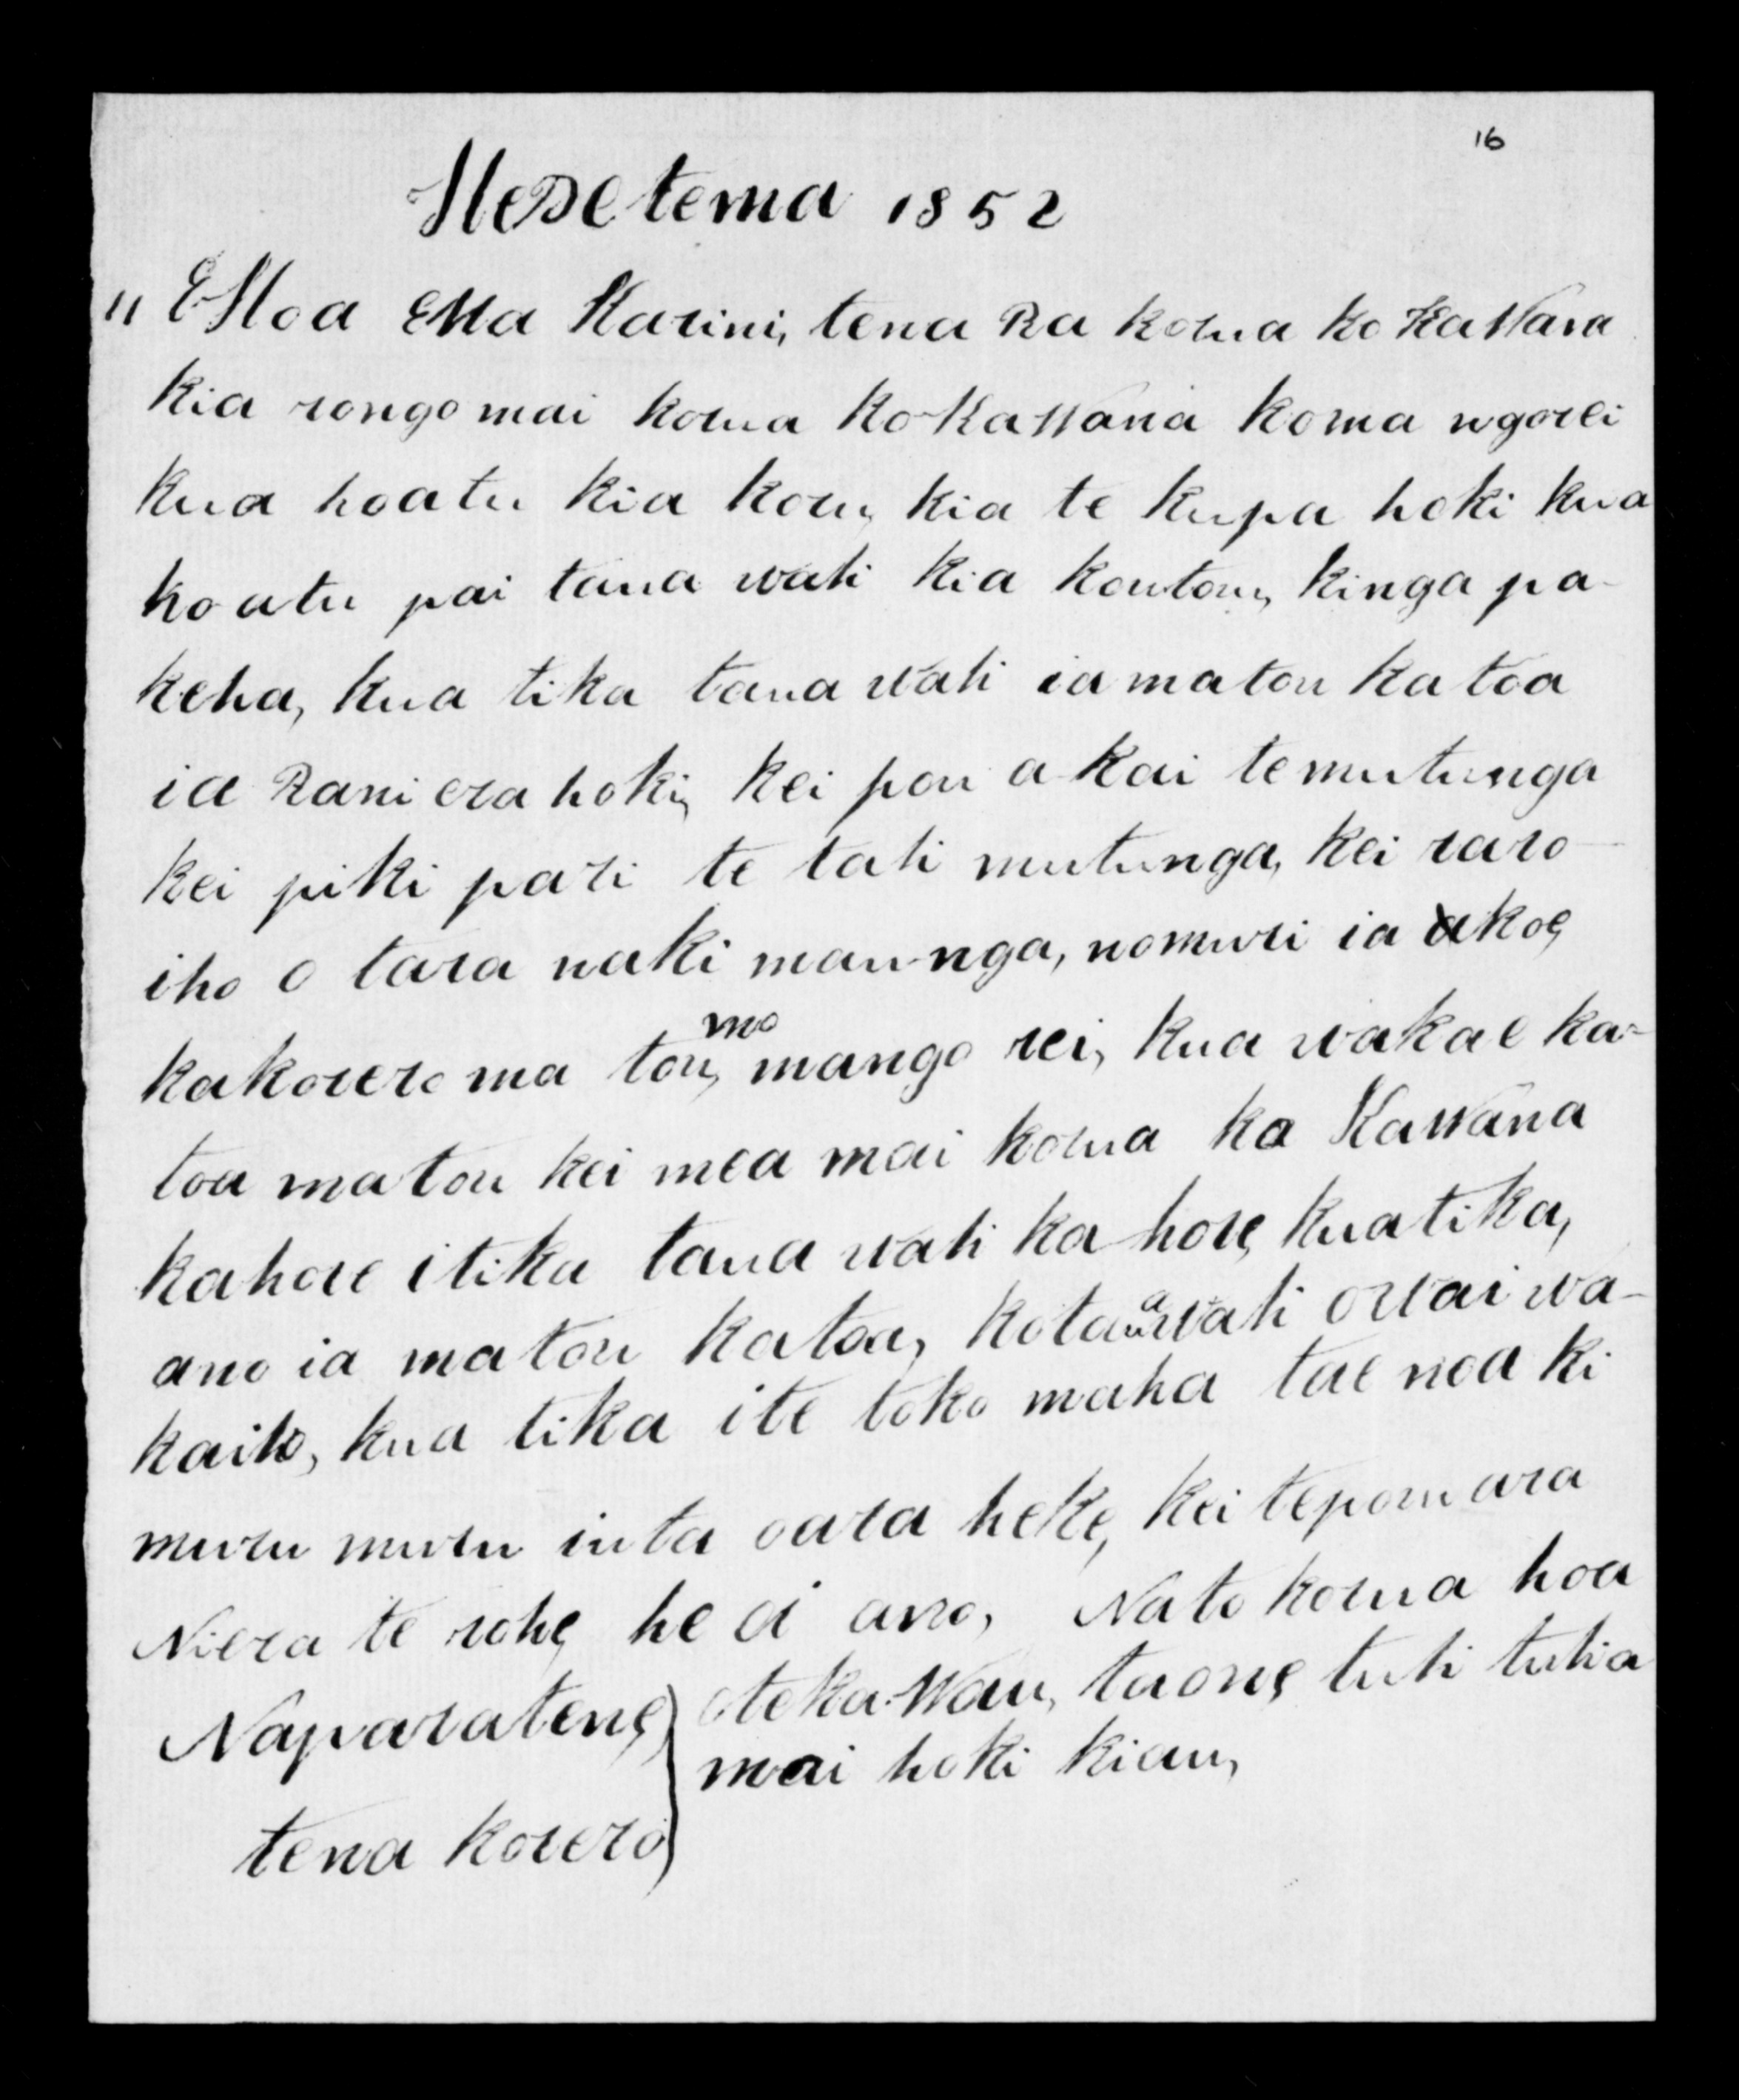 16
Hepetema 1852
" E Hoa E Ma Karini, tena Ra korua ko Kawana
kia rongo mai korua ko Kawana ko mangorei
kua hoatu kia koru, kia te kupa hoki kua
hoatu pai taua wahi kia koutou, kinga pa-
keha, kua tika taua wahi ia matou katoa
ia Raniera hoki, kei pou a kai te mutunga
kei piki pari te tahi mutunga, kei raro
iho o tara naki maunga, nomuri ia koe,
kakorero ma tou, mo mango rei, kua wakae ka-
toa matou kei mea mai korua ko Kawana
kahore i tika taua wahi ka hore, kuatika,
ano ia matou katoa, kotaua wahi o wai wa-
kaiho, kua tika ite toko maha tae noa ki
muru muru iuta oara heke, kei tepou ara
Niera te rohe, he oi ano, Nato korua hoa
Naparatene) oteka Wau, taone, tuhi tuhia
mai hoki kiau,
tena korero)